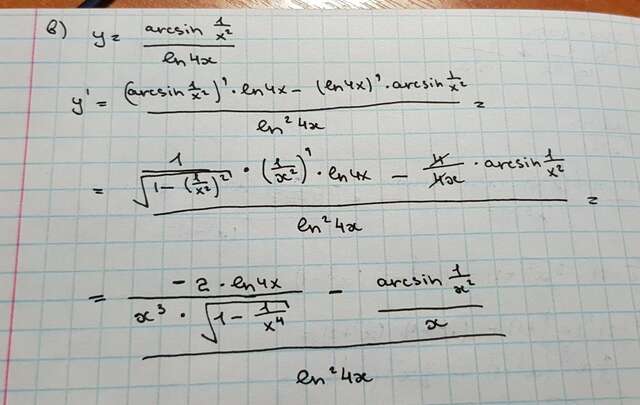 в) y = arcsin 1/x² / ln 4x
y' = (arcsin 1/x²)' · ln 4x − (ln 4x)' · arcsin 1/x² / ln² 4x =
= 1/√(1 − (1/x²)²) · (1/x²)' · ln 4x − 4/4x · arcsin 1/x² / ln² 4x =
= −2 · ln 4x / x³ · √(1 − 1/x⁴) − arcsin 1/x² / x / ln² 4x